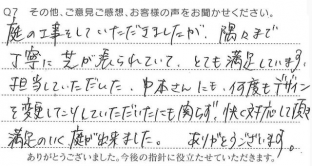 Q7 その他、ご意見ご感想、お客様の声をお聞かせください。
庭の工事をしていただきましたが、隅々まで
丁寧に芝が張られていて、とても満足しています。
担当していただいた、中本さんにも、何度もデザイン
を変更したりしていただいたにも関らず、快く対応して頂き
満足のいく庭が出来ました。 ありがとうございます。
ありがとうございました。今後の指針に役立たせていただきます。